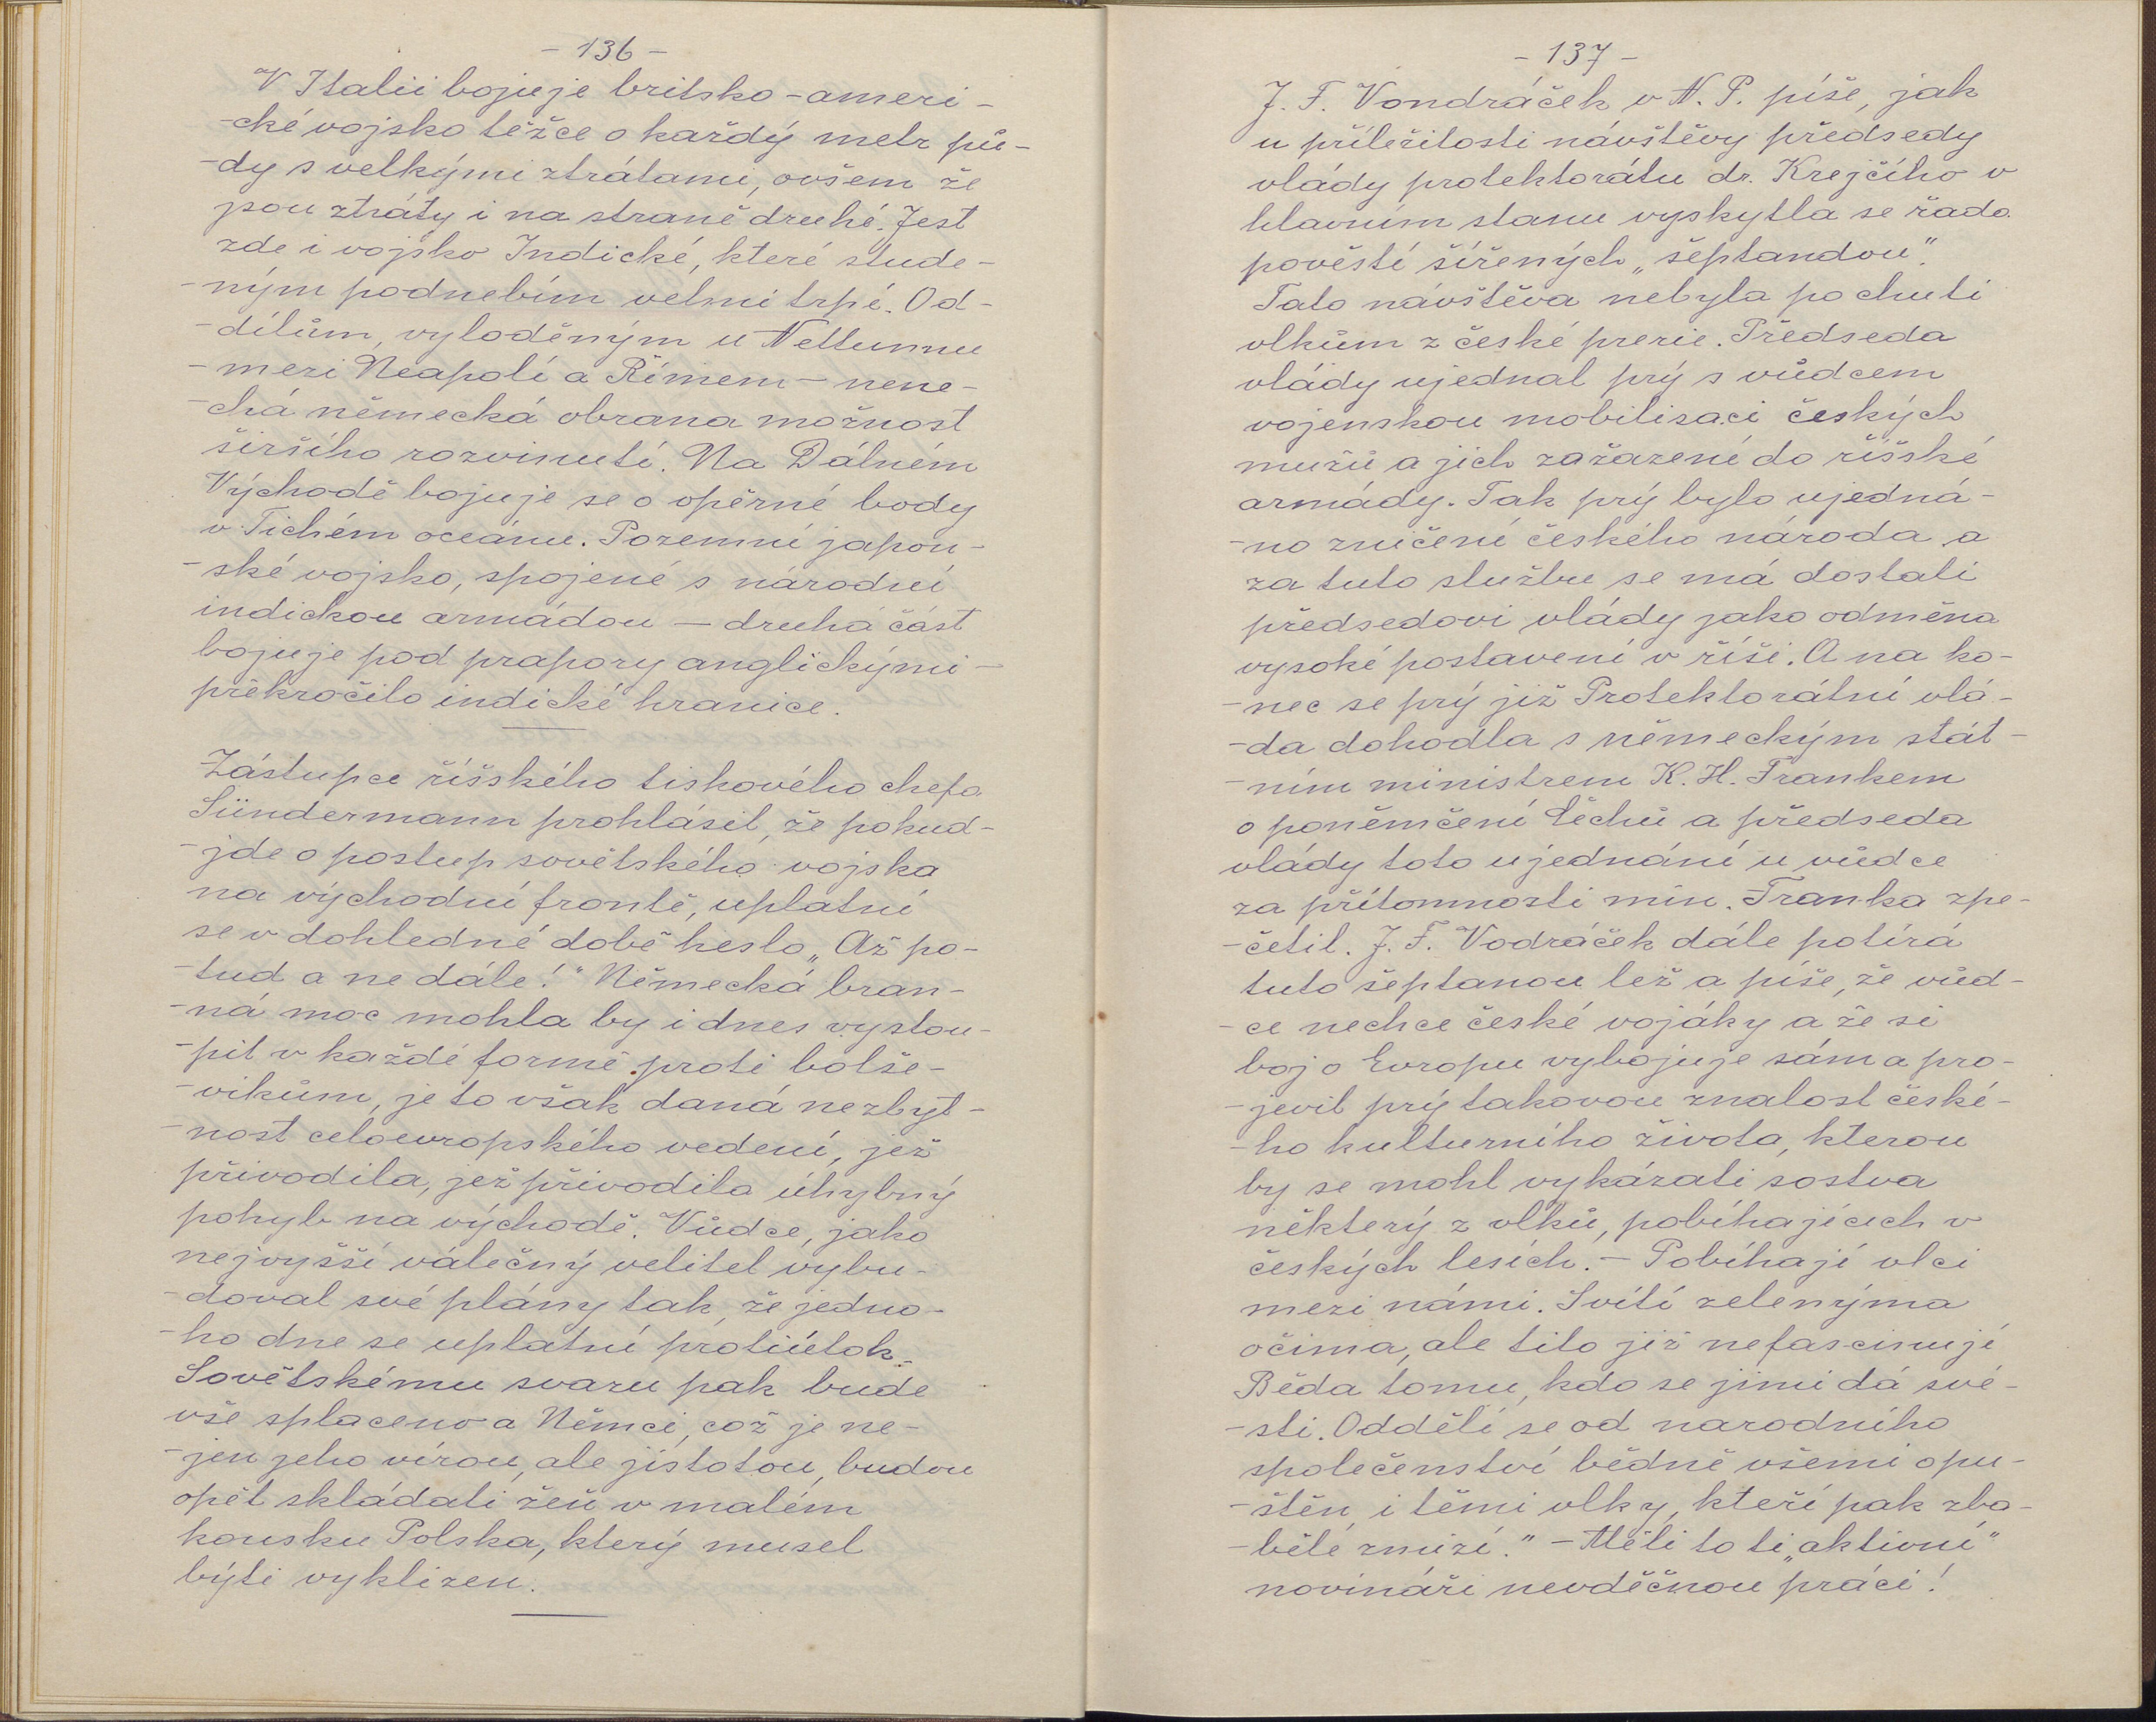 - 136 -
V Italii bojuje britsko-ameri-
-cké vojsko těžce o každý metr pů-
-dy s velkými ztrátami, ovšem že
jsou ztráty i na straně druhé. Jest
zde i vojsko Indické, které stude-
-ným podnebím velmi trpí. Od-
-dílům, vyloděným u Nettunnu
-mezi Neapolí a Římem - nene-
-chá německá obrana možnost
širšího rozvinutí. Na Dálném
Východě bojuje se o opěrné body
v Tichém oceánu. Pozemní japon-
-ské vojsko, spojené s národní
indickou armádou - druhá část
bojuje pod prapory anglickými -
překročilo indické hranice.
Zástupce říšského tiskového chefa
Sündermann prohlásil, že pokud-
-jde o postup sovětského vojska
na východní frontě, uplatní
se v dohledné době heslo „Až po-
-tud a ne dále!" Německá bran-
-ná moc mohla by i dnes vystou-
-pit v každé formě proti bolše-
-vikům, je to však daná nezbyt-
-nost celoevropského vedení, jež
přivodila, jež přivodila úhybný
pohyb na východě. Vůdce, jako
nejvyšší válečný velitel vybu-
-doval své plány tak, že jedno-
-ho dne se uplatní protiútok.
Sovětskému svazu pak bude
vše splaceno a Němci, což je ne-
-jen jeho vírou, ale jistotou, budou
opět skládati žeň v malém
kousku Polska, který musel
býti vyklizen.
- 137 -
J. F. Vondráček v N. P. píše, jak
u příležitosti návštěvy předsedy
vlády protektorátu dr. Krejčího v
hlavním stanu vyskytla se řada
pověstí šířených „šeptandou".
Tato návštěva nebyla po chuti
vlkům z české prerie. Předseda
vlády ujednal prý s vůdcem
vojenskou mobilisaci českých
mužů a jich zařazení do říšské
armády. Tak prý bylo ujedná-
-no zničení českého národa a
za tuto službu se má dostati
předsedovi vlády jako odměna
vysoké postavení v říši. A na ko-
-nec se prý již Protektorátní vlá-
-da dohodla s německým stát-
-ním ministrem K. H. Frankem
o poněmčení Čechů a předseda
vlády toto ujednání u vůdce
za přítomnosti min. Franka zpe-
-četil. J. F. Vodráček dále potírá
tuto šeptanou lež a píše, že vůd-
-ce nechce české vojáky a že si
boj o Evropu vybojuje sám a pro-
-jevil prý takovou znalost české-
-ho kulturního života, kterou
by se mohl vykázati sostva
některý z vlků, pobíhajících v
českých lesích. - Pobíhají vlci
mezi námi. Svítí zelenýma
očima, ale tito již nefascinují
Běda tomu, kdo se jimi dá své-
-sti. Oddělí se od narodního
společenství bědně všemi opu-
-štěn, i těmi vlky, kteří pak zba-
-běle zmizí." - Měli to ti „aktivní"
novináři nevděčnou práci!